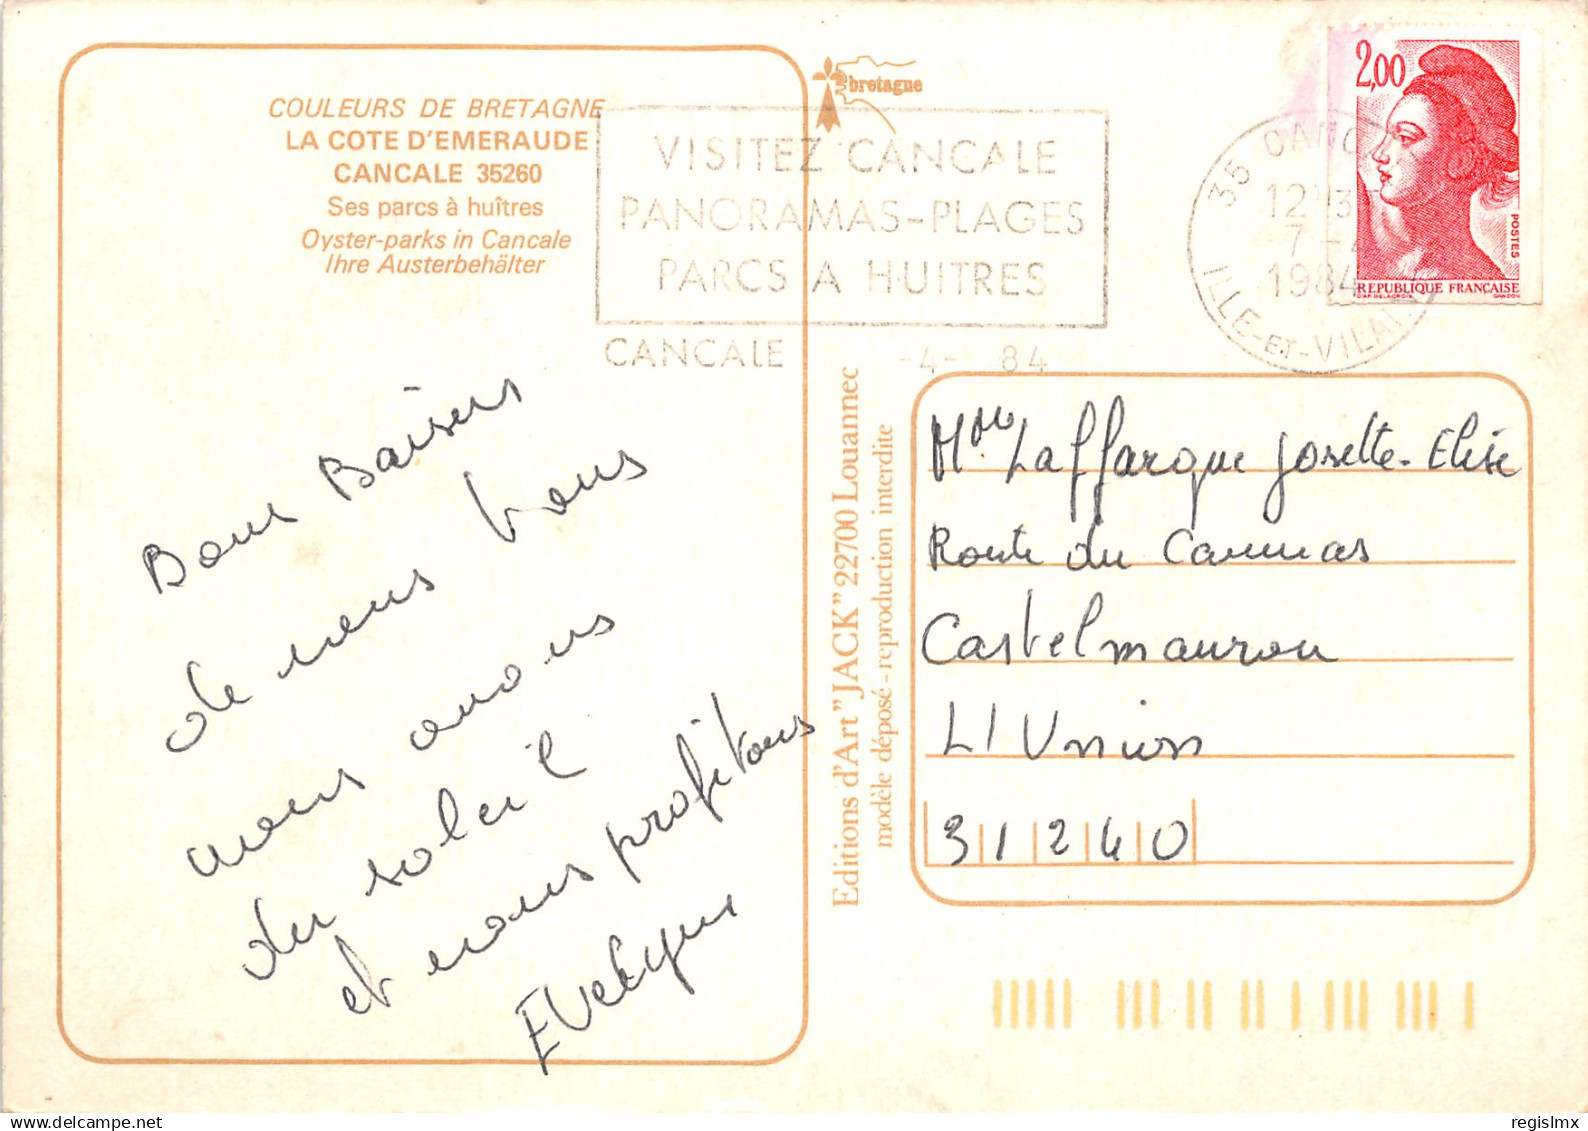 COULEURS DE BRETAGNE
LA COTE D'EMERAUDE
CANCALE 35260
Ses parcs à huîtres
Oyster-parks in Cancale
Ihre Austerbehälter
bretagne
VISITEZ CANCALE
PANORAMAS-PLAGES
PARCS A HUITRES
CANCALE -4- 84
35 CANC
12H3
7-4
1984
ILLE-ET-VILAI
2,00
POSTES
REPUBLIQUE FRANÇAISE
D'AP. DELACROIX GANDON
Bons Baisers
de nous tous
nous avons
du soleil
et nous profitons
Evelyne
Editions d'Art "JACK" 22700 Louannec
modèle déposé - reproduction interdite
Laffargue Josette-Elise
Route du Cammas
Castelmaurou
L'Union
31240
regislmx